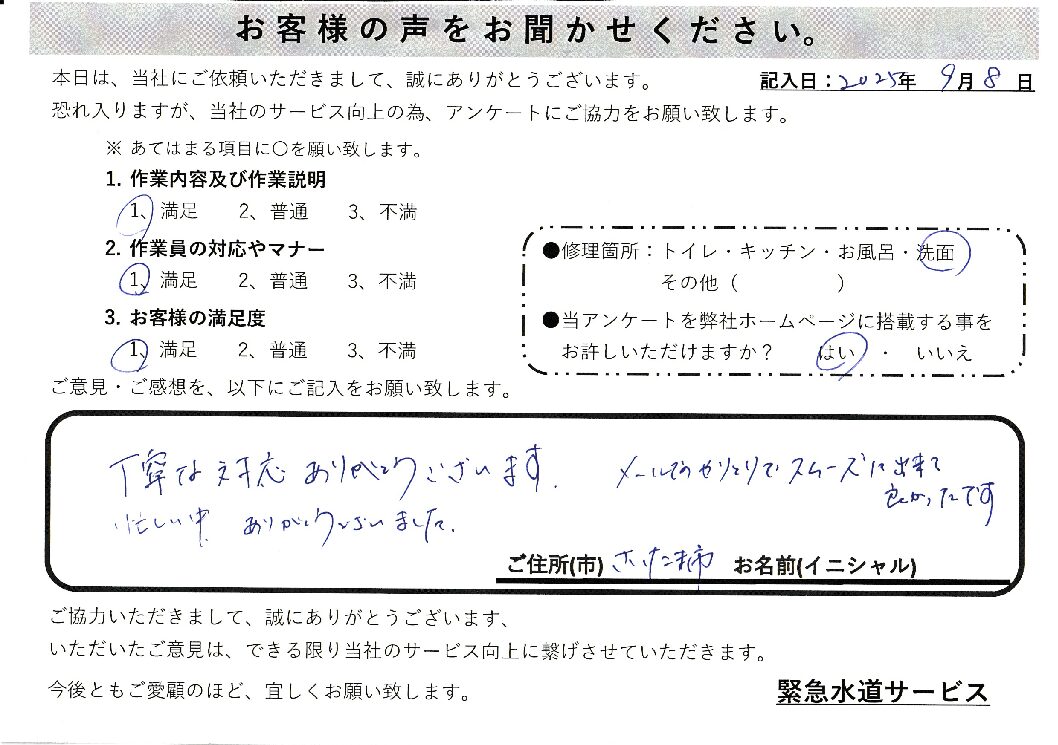 お客様の声をお聞かせください。
本日は、当社にご依頼いただきまして、誠にありがとうございます。
記入日：2025年 9月 8日
恐れ入りますが、当社のサービス向上の為、アンケートにご協力をお願い致します。
※ あてはまる項目に〇を願い致します。
1. 作業内容及び作業説明
1、満足 2、普通 3、不満
2. 作業員の対応やマナー
1、満足 2、普通 3、不満
3. お客様の満足度
1、満足 2、普通 3、不満
●修理箇所：トイレ・キッチン・お風呂・洗面
その他（ ）
●当アンケートを弊社ホームページに搭載する事を
お許しいただけますか？ はい ・ いいえ
ご意見・ご感想を、以下にご記入をお願い致します。
丁寧な対応 ありがとうございます.
忙しい中 ありがとうございました.
メールでのやりとりでスムーズに出来て
良かったです
ご住所(市) さいたま市 お名前(イニシャル)
ご協力いただきまして、誠にありがとうございます、
いただいたご意見は、できる限り当社のサービス向上に繋げさせていただきます。
今後ともご愛顧のほど、宜しくお願い致します。
緊急水道サービス